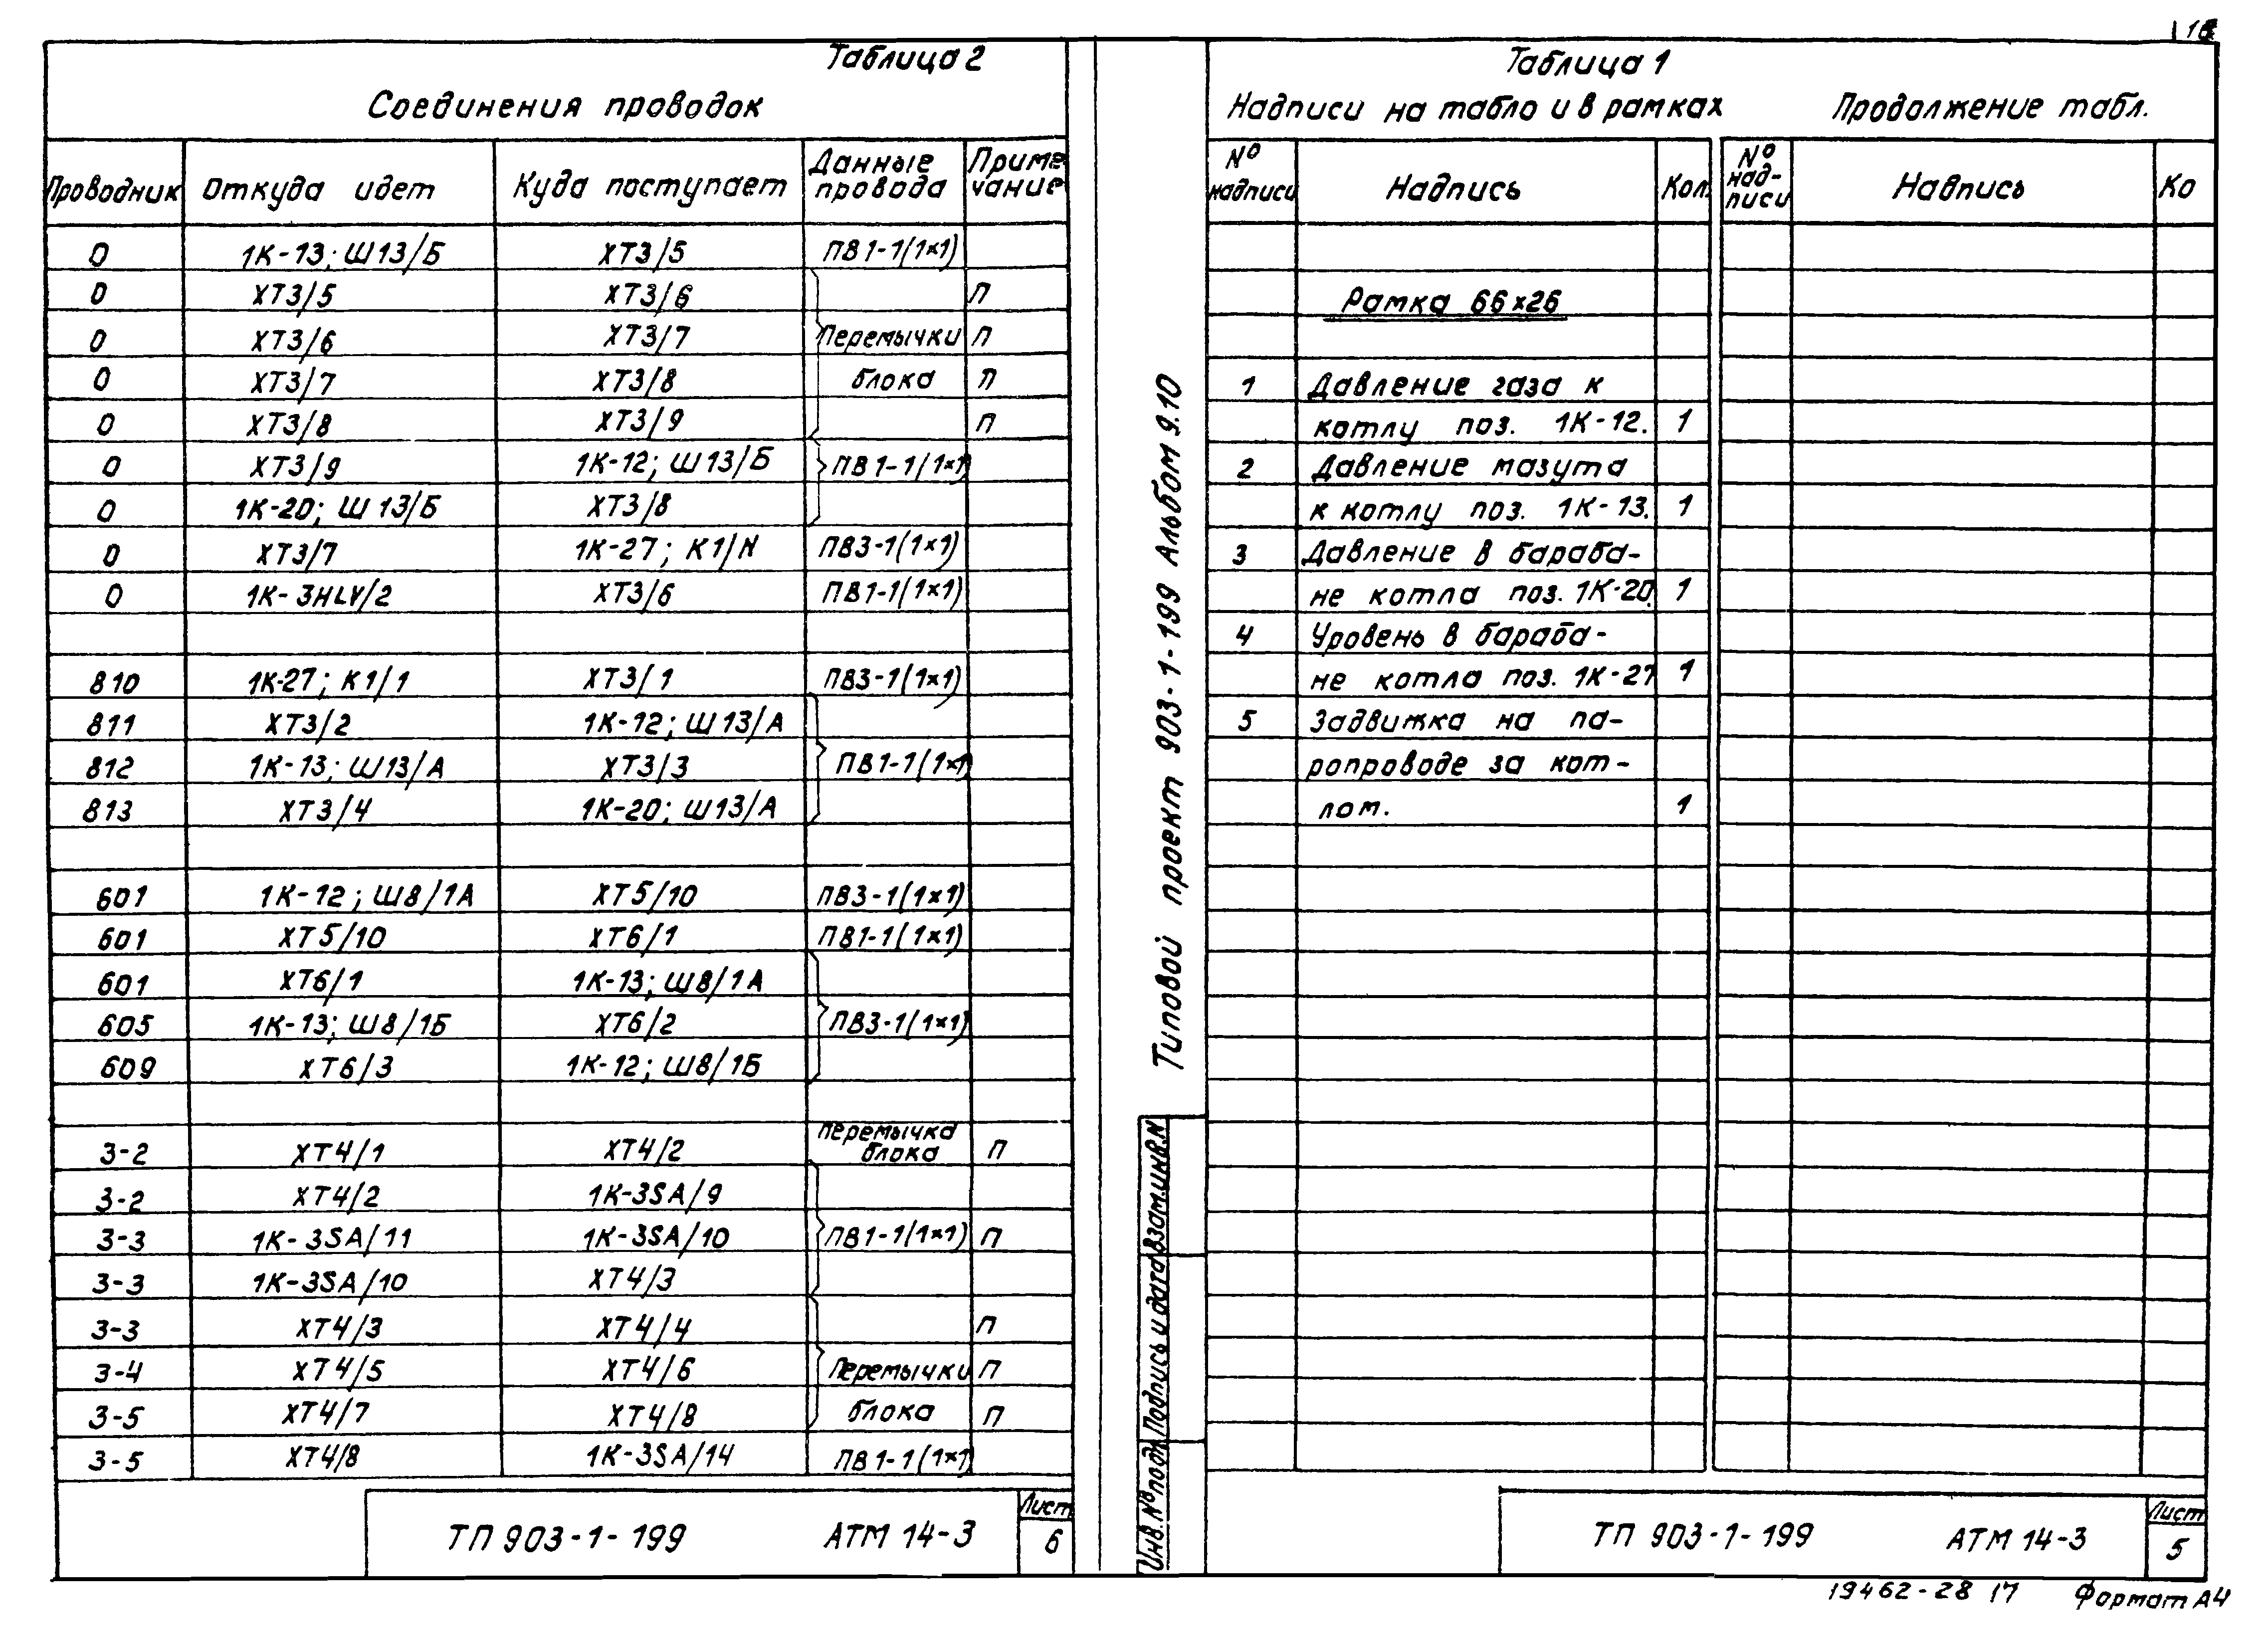 18
Таблица 2
Соединения проводок
Проводник Откуда идет Куда поступает Данные провода Приме чание
0 1К-13; Ш13/Б ХТ3/5 ПВ1-1(1×1)
0 ХТ3/5 ХТ3/6 П
0 ХТ3/6 ХТ3/7 Перемычки П
0 ХТ3/7 ХТ3/8 блока П
0 ХТ3/8 ХТ3/9 П
0 ХТ3/9 1К-12; Ш13/Б ПВ1-1(1×1)
0 1К-20; Ш13/Б ХТ3/8
0 ХТ3/7 1К-27; К1/N ПВ3-1(1×1)
0 1К-3HLV/2 ХТ3/6 ПВ1-1(1×1)
810 1К-27; К1/1 ХТ3/1 ПВ3-1(1×1)
811 ХТ3/2 1К-12; Ш13/А
812 1К-13; Ш13/А ХТ3/3 ПВ1-1(1×1)
813 ХТ3/4 1К-20; Ш13/А
601 1К-12; Ш8/1А ХТ5/10 ПВ3-1(1×1)
601 ХТ5/10 ХТ6/1 ПВ1-1(1×1)
601 ХТ6/1 1К-13; Ш8/1А
605 1К-13; Ш8/1Б ХТ6/2 ПВ3-1(1×1)
609 ХТ6/3 1К-12; Ш8/1Б
3-2 ХТ4/1 ХТ4/2 перемычка блока П
3-2 ХТ4/2 1К-3SA/9
3-3 1К-3SA/11 1К-3SA/10 ПВ1-1(1×1) П
3-3 1К-3SA/10 ХТ4/3
3-3 ХТ4/3 ХТ4/4 П
3-4 ХТ4/5 ХТ4/6 Перемычки П
3-5 ХТ4/7 ХТ4/8 блока П
3-5 ХТ4/8 1К-3SA/14 ПВ1-1(1×1)
ТП 903-1-199 АТМ 14-3 Лист 6
Типовой проект 903-1-199 Альбом 9.10
Инв. № подл. Подпись и дата Взам.инв.N
Таблица 1
Надписи на табло и в рамках Продолжение табл.
№ надписи Надпись Кол. № над- писи Надпись Ко
Рамка 66×26
1 Давление газа к
котлу поз. 1К-12. 1
2 Давление мазута
к котлу поз. 1К-13. 1
3 Давление в бараба-
не котла поз. 1К-20. 1
4 Уровень в бараба-
не котла поз. 1К-27 1
5 Задвижка на па-
ропроводе за кот-
лом. 1
ТП 903-1-199 АТМ 14-3 Лист 5
19462-28 17 Формат А4